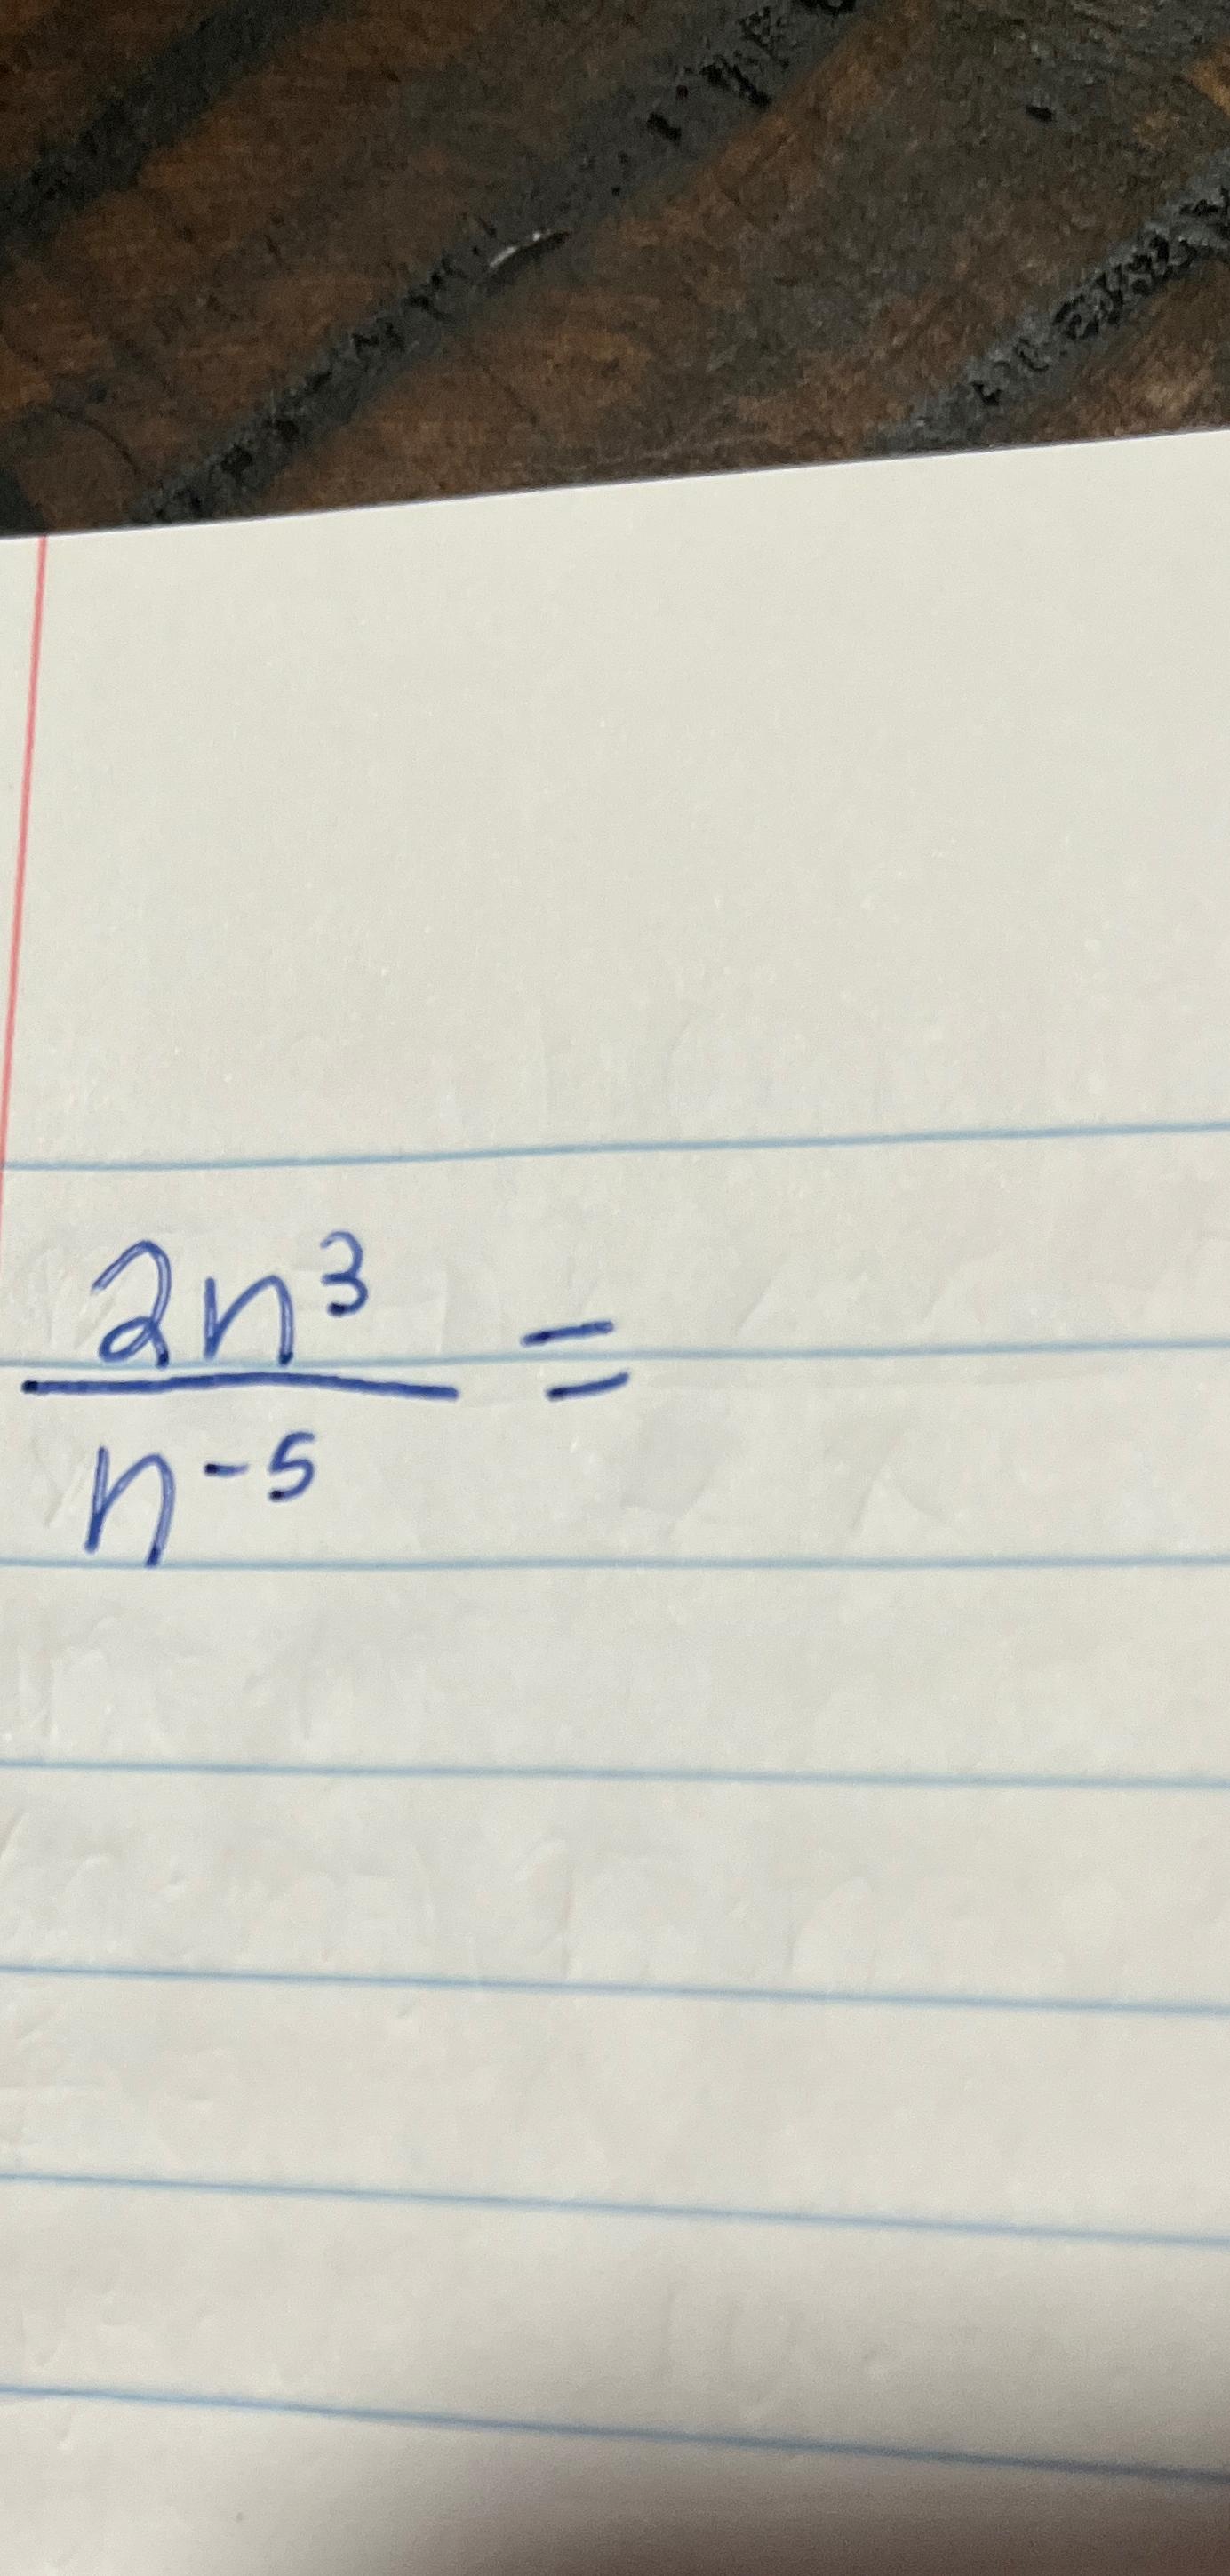 2n³/n⁻⁵ =